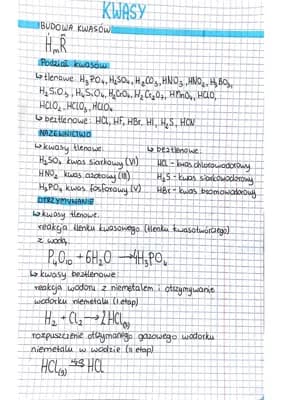 KWASY
BUDOWA KWASÓW
HₘR
Podział kwasów
↳ tlenowe: H₃PO₄, H₂SO₄, H₂CO₃, HNO₃, HNO₂, H₃BO₃,
H₂SiO₃, H₄SiO₄, H₂CrO₄, H₂Cr₂O₇, HMnO₄, HClO,
HClO₂, HClO₃, HClO₄
↳ beztlenowe: HCl, HF, HBr, HI, H₂S, HCN
NAZEWNICTWO
↳ kwasy tlenowe: ↳ beztlenowe:
H₂SO₄ kwas siarkowy (VI) HCl - kwas chlorowodorowy
HNO₂ kwas azotowy (III) H₂S - kwas siarkowodorowy
H₃PO₄ kwas fosforowy (V) HBr - kwas bromowodorowy
OTRZYMYWANIE
↳ kwasy tlenowe:
reakcja tlenku kwasowego (tlenku kwasotwórczego)
z wodą,
P₄O₁₀ + 6H₂O → 4H₃PO₄
↳ kwasy beztlenowe:
reakcja wodoru z niemetalem i otrzymywanie
wodorku niemetalu (I etap)
H₂ + Cl₂ → 2HCl(g)
rozpuszczenie otrzymanego gazowego wodorku
niemetalu w wodzie (II etap)
HCl(g) HCl